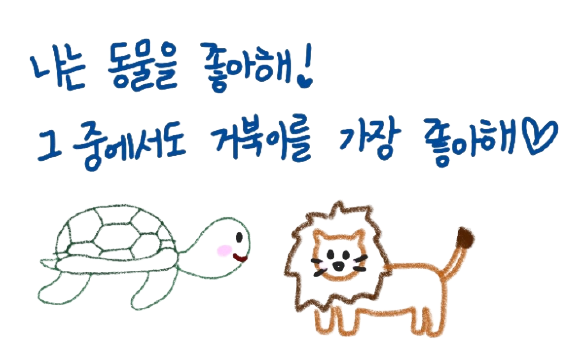 나는 동물을 좋아해!
그 중에서도 거북이를 가장 좋아해♡